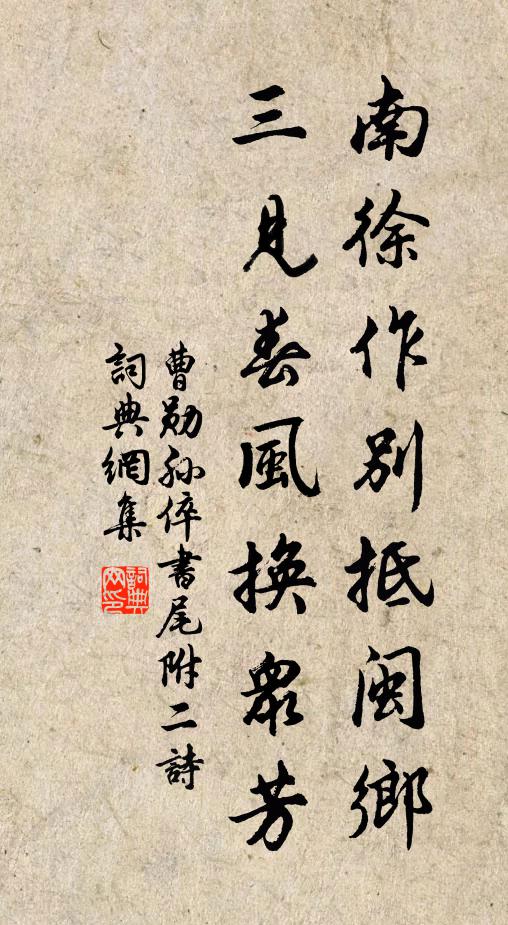 南徐作別抵閩鄉
三見春風換眾芳
曹勛孙倅書尾附二詩
詞典網集
詞典
网印